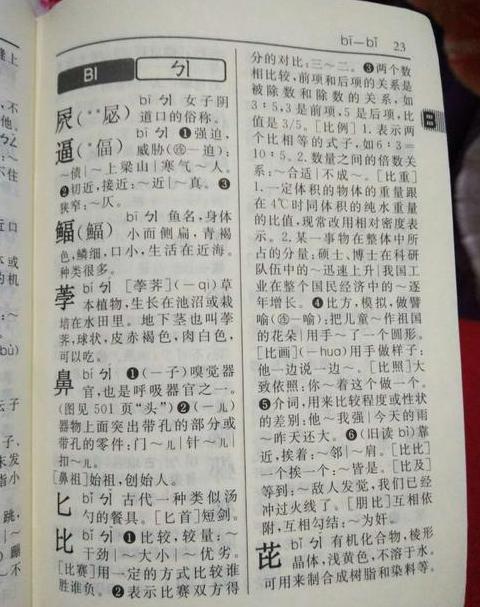 bī—bǐ 23
BI ㄅㄧ
屄(**屄) bī ㄅㄧ 女子阴
道口的俗称。
逼(*偪) bī ㄅㄧ ❶强迫,
威胁(㊣一迫):
~债|~上梁山|寒气~人。
❷切近,接近:~近|~真。❸
狭窄:~仄。
鲾(鰏) bī ㄅㄧ 鱼名,身体
小而侧扁,青褐
色,鳞细,口小,生活在近海。
种类很多。
荸 bí ㄅㄧˊ [荸荠](-qi)草
本植物,生长在池沼或栽
培在水田里。地下茎也叫荸
荠,球状,皮赤褐色,肉白色,
可以吃。
鼻 bí ㄅㄧˊ ❶(一子)嗅觉器
官,也是呼吸器官之一。
(图见501页“头”)❷(一儿)
器物上面突出带孔的部分或
带孔的零件:门~儿|针~儿|
扣~儿。
[鼻祖]始祖,创始人。
匕 bǐ ㄅㄧˇ 古代一种类似汤
勺的餐具。[匕首]短剑。
比 bǐ ㄅㄧˇ ❶比较,较量:~
干劲|~大小|~优劣。
[比赛]用一定的方式比较谁
胜谁负。❷表示比赛双方得
分的对比:三~二。❸两个数
相比较,前项和后项的关系是
被除数和除数的关系,如
3∶5,3是前项,5是后项,比
值是3/5。[比例]1.表示两
个比相等的式子,如6∶3=
10∶5。2.数量之间的倍数关
系:~合适|不成~。[比重]
1.一定体积的物体的重量跟
在4℃时同体积的纯水重量
的比值,现常改用相对密度表
示。2.某一事物在整体中所
占的分量:硕士、博士在科研
队伍中的~迅速上升|我国工
业在整个国民经济中的~逐
年增长。❹比方,模拟,做譬
喻(㊣一喻):把儿童~作祖国
的花朵|用手~了一个圆形。
[比画](-hua)用手做样子:
他一边说一边~。[比照]大
致依照:你~着这个做一个。
❺介词,用来比较程度或性状
的差别:他~我强|今天的雨
~昨天还大。❻(旧读bì)靠
近,挨着:~邻|~肩。[比比]
一个挨一个:~皆是。[比及]
等到:~敌人发觉,我们已经
冲过火线了。[朋比]互相依
附,互相勾结:~为奸。
芘 bǐ ㄅㄧˇ 有机化合物,棱形
晶体,浅黄色,不溶于水。
可用来制合成树脂和染料等。